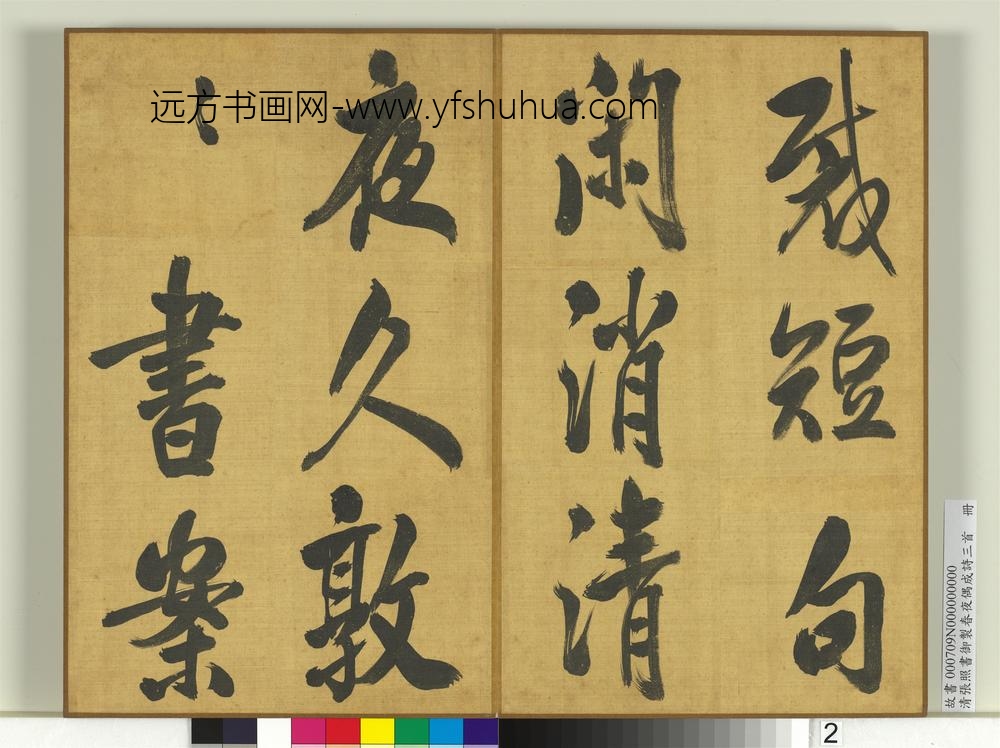 远方书画网-www.yfshuhua.com
裁短句
閑消清
夜久敦
〻書案
故書 000709N000000000
清張照書御製春夜偶成詩三首 冊
2